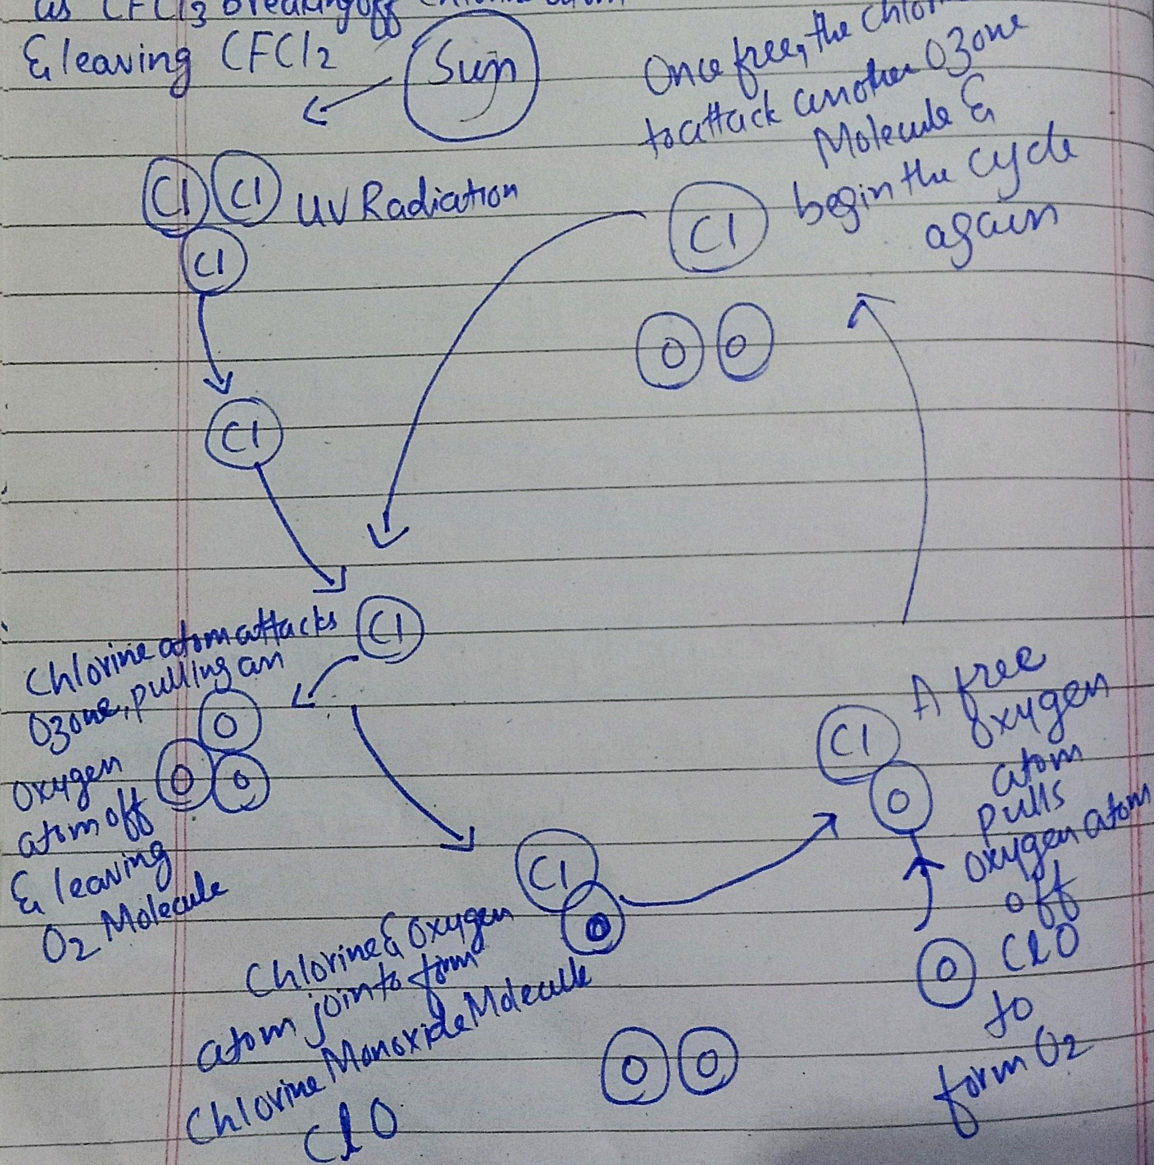 as CFCl3 breaking off
& leaving CFCl2
Sun
Once free, the
to attack another Ozone
Molecule &
begin the cycle
again
Cl Cl
UV Radiation
Cl
Cl
O O
Cl
Chlorine atom attacks
Cl
Ozone, pulling an
O
Oxygen
O O
atom off
& leaving
O2 Molecule
Cl
O
Chlorine & Oxygen
atom join to form
Chlorine Monoxide Molecule
ClO
O O
Cl
O
A free
oxygen
atom
pulls
oxygen atom
off
O
ClO
to
form O2